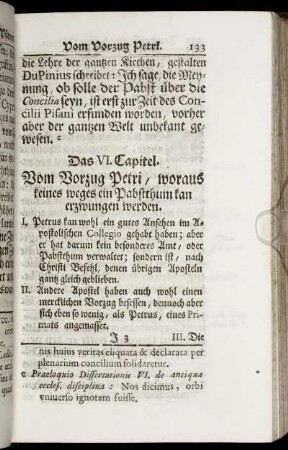 Vom Vorzug Petri. 133
die Lehre der gantzen Kirchen, gestalten
DuPinius schreibet: Ich sage, die Mey-
nung, ob solle der Pabst über die
Concilia seyn, ist erst zur Zeit des Con-
cilii Pisani erfunden worden, vorher
aber der gantzen Welt unbekant ge-
wesen.
Das VI. Capitel.
Vom Vorzug Petri, woraus
keines weges ein Pabstthum kan
erzwungen werden.
I. Petrus kan wohl ein gutes Ansehen im A-
postolischen Collegio gehabt haben; aber
er hat darum kein besonderes Amt, oder
Pabstthum verwaltet; sondern ist, nach
Christi Befehl, denen übrigen Aposteln
gantz gleich geblieben.
II. Andere Apostel haben auch wohl einen
mercklichen Vorzug besessen, dennoch aber
sich eben so wenig, als Petrus, eines Pri-
mats angemasset.
I 3 III. Die
nis huius veritas eliquata & declarata per
plenarium concilium solidaretur.
c Praeloquio Dissertationis VI. de antiqua
eccles. disciplina: Nos dicimus, orbi
vniuerso ignotam fuisse.